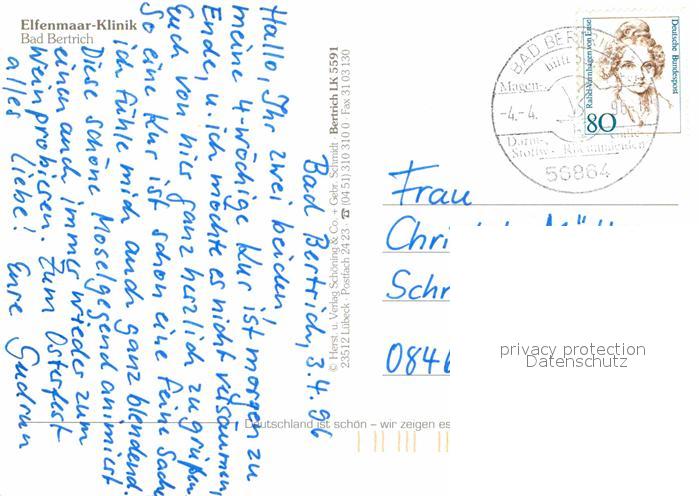 Elfenmaar-Klinik
Bad Bertrich
Bad Bertrich, 3.4.96
Hallo, Ihr zwei beiden
meine 4-wöchige Kur ist morgen zu
Ende, u. ich möchte es nicht versäumen,
Euch von hier ganz herzlich zu grüßen.
So eine Kur ist schon eine feine Sache
ich fühle mich auch ganz blendend.
Diese schöne Moselgegend animiert
einen auch immer wieder zum
Weinprobieren. Zum Osterfest
alles liebe! Eure Gudrun
© Herst. u. Verlag Schöning & Co. + Gebr. Schmidt · Bertrich LK 5591
23512 Lübeck · Postfach 24 23 · ☎ (04 51) 310 310 0 · Fax 31 03 130
Deutschland ist schön – wir zeigen es
BAD BERTRICH
Magen-
-4.-4.
Darm-
Stoffw.-
56864
Rahel Varnhagen von Ense
Deutsche Bundespost
80
Frau
Chri
Schr
0846
privacy protection
Datenschutz